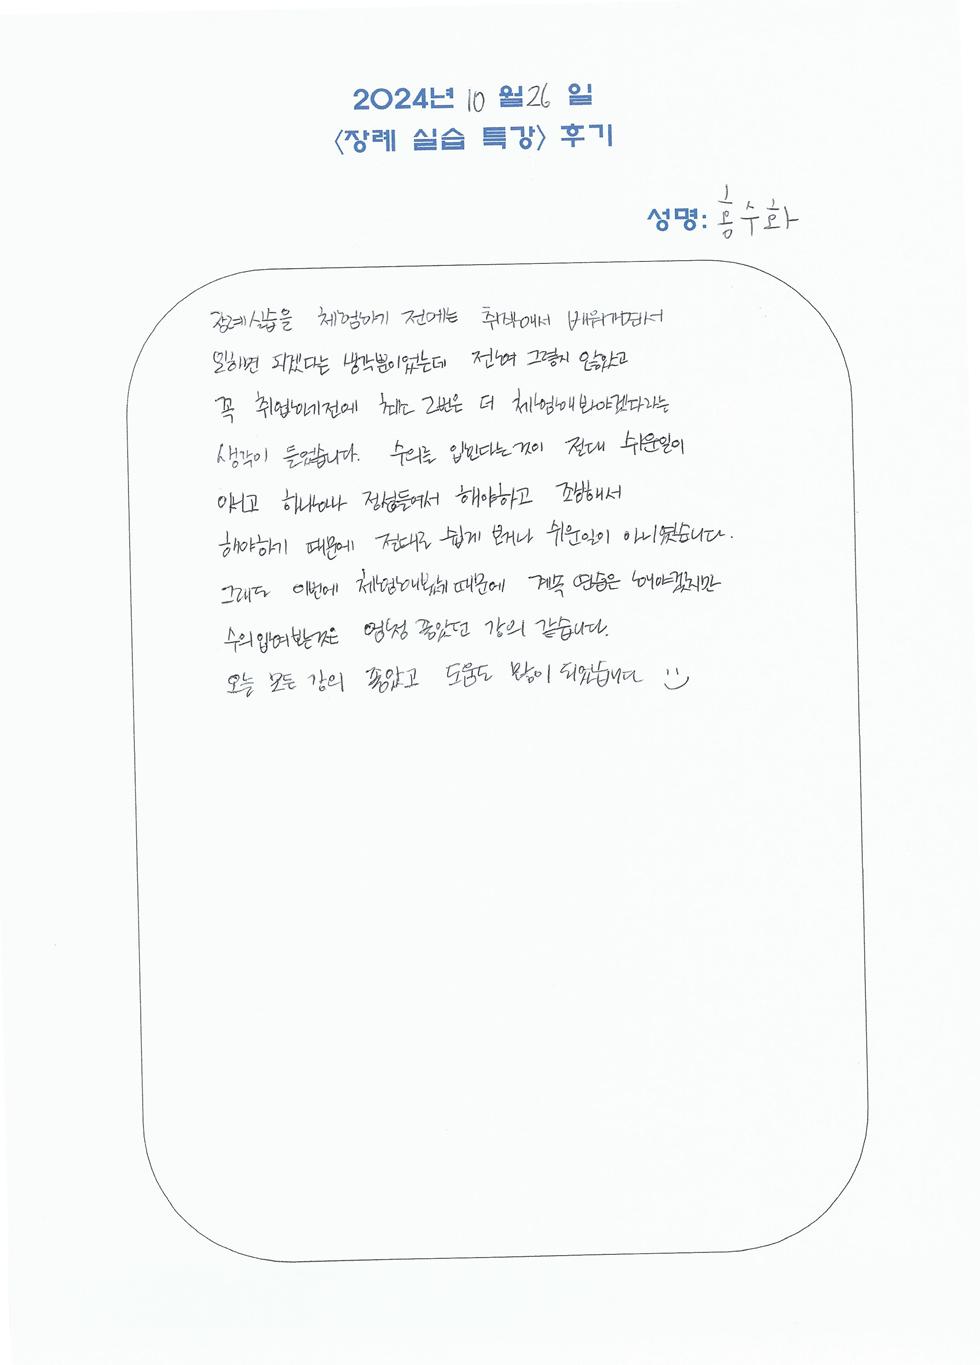 2024년 10 월 26 일
<장례 실습 특강> 후기
성명: 홍수화
장례실습을 체험하기 전에는 취직해서 배워가면서
일하면 되겠다는 생각뿐이었는데 전혀 그렇지 않았고
꼭 취업하기전에 2번은 더 체험해봐야겠다라는
생각이 들었습니다. 수의를 입힌다는것이 절대 쉬운일이
아니고 하나하나 정성들여서 해야하고 조심해서
해야하기 때문에 절대로 쉽게 보거나 쉬운일이 아니였습니다.
그래도 이번에 체험해봤기 때문에 계속 연습은 해야겠지만
수의입혀본것은 엄청 좋았던 강의 같습니다.
오늘 모든 강의 좋았고 도움도 많이 되었습니다